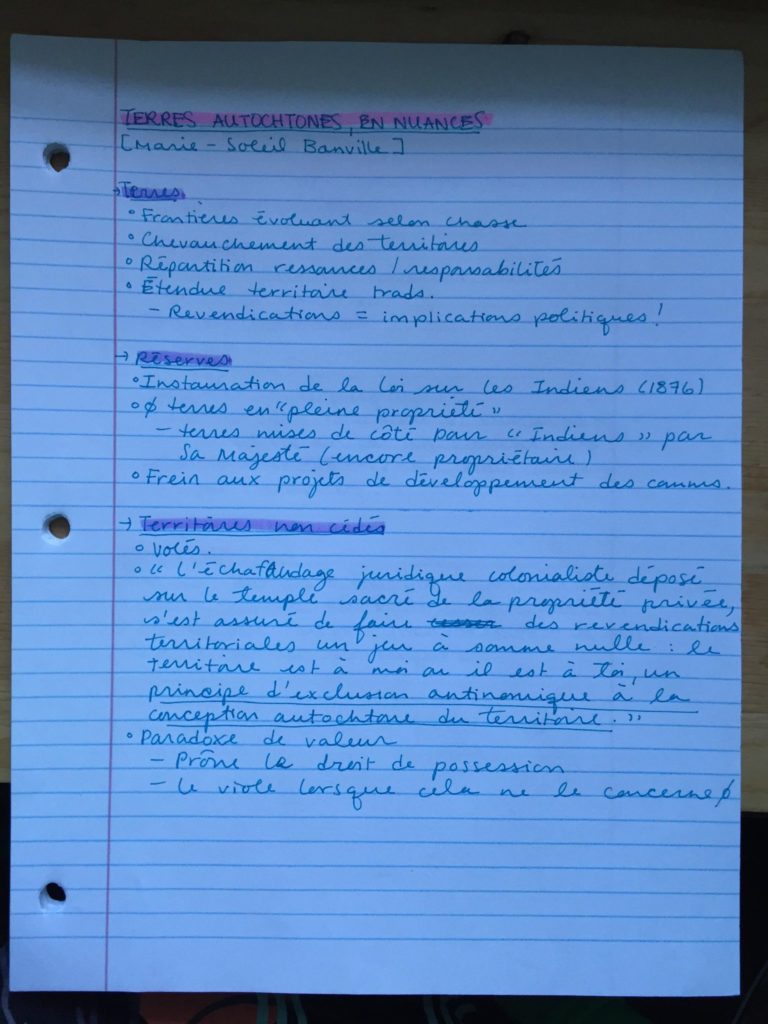 TERRES AUTOCHTONES, EN NUANCES
[Marie-Soleil Banville]
→ Terres
° Frontières évoluant selon chasse
° Chevauchement des territoires
° Répartition ressources / responsabilités
° Étendue territoire trads.
– Revendications = implications politiques !
→ Réserves
° Instauration de la Loi sur les Indiens (1876)
° ∅ terres en "pleine propriété"
– terres mises de côté pour "Indiens" par
Sa Majesté (encore propriétaire)
° Frein aux projets de développement des comms.
→ Territoires non cédés
° Volés.
° "L'échafaudage juridique colonialiste déposé
sur le temple sacré de la propriété privée,
s'est assuré de faire des revendications
territoriales un jeu à somme nulle : le
territoire est à moi ou il est à toi, un
principe d'exclusion antinomique à la
conception autochtone du territoire."
° Paradoxe de valeur
– Prône le droit de possession
– Le viole lorsque cela ne le concerne ∅